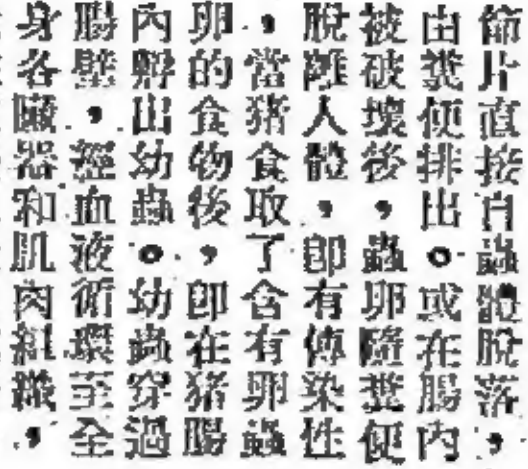 節片直接自蟲體脫落，
由糞便排出。或在腸內
被破壞後，蟲卵隨糞便
脫離人體，即有傳染性
，當猪食取了含有卵蟲
卵的食物後，即在猪腸
內孵出幼蟲。幼蟲穿過
腸壁，經血液循環至全
身各臟器和肌肉組織，